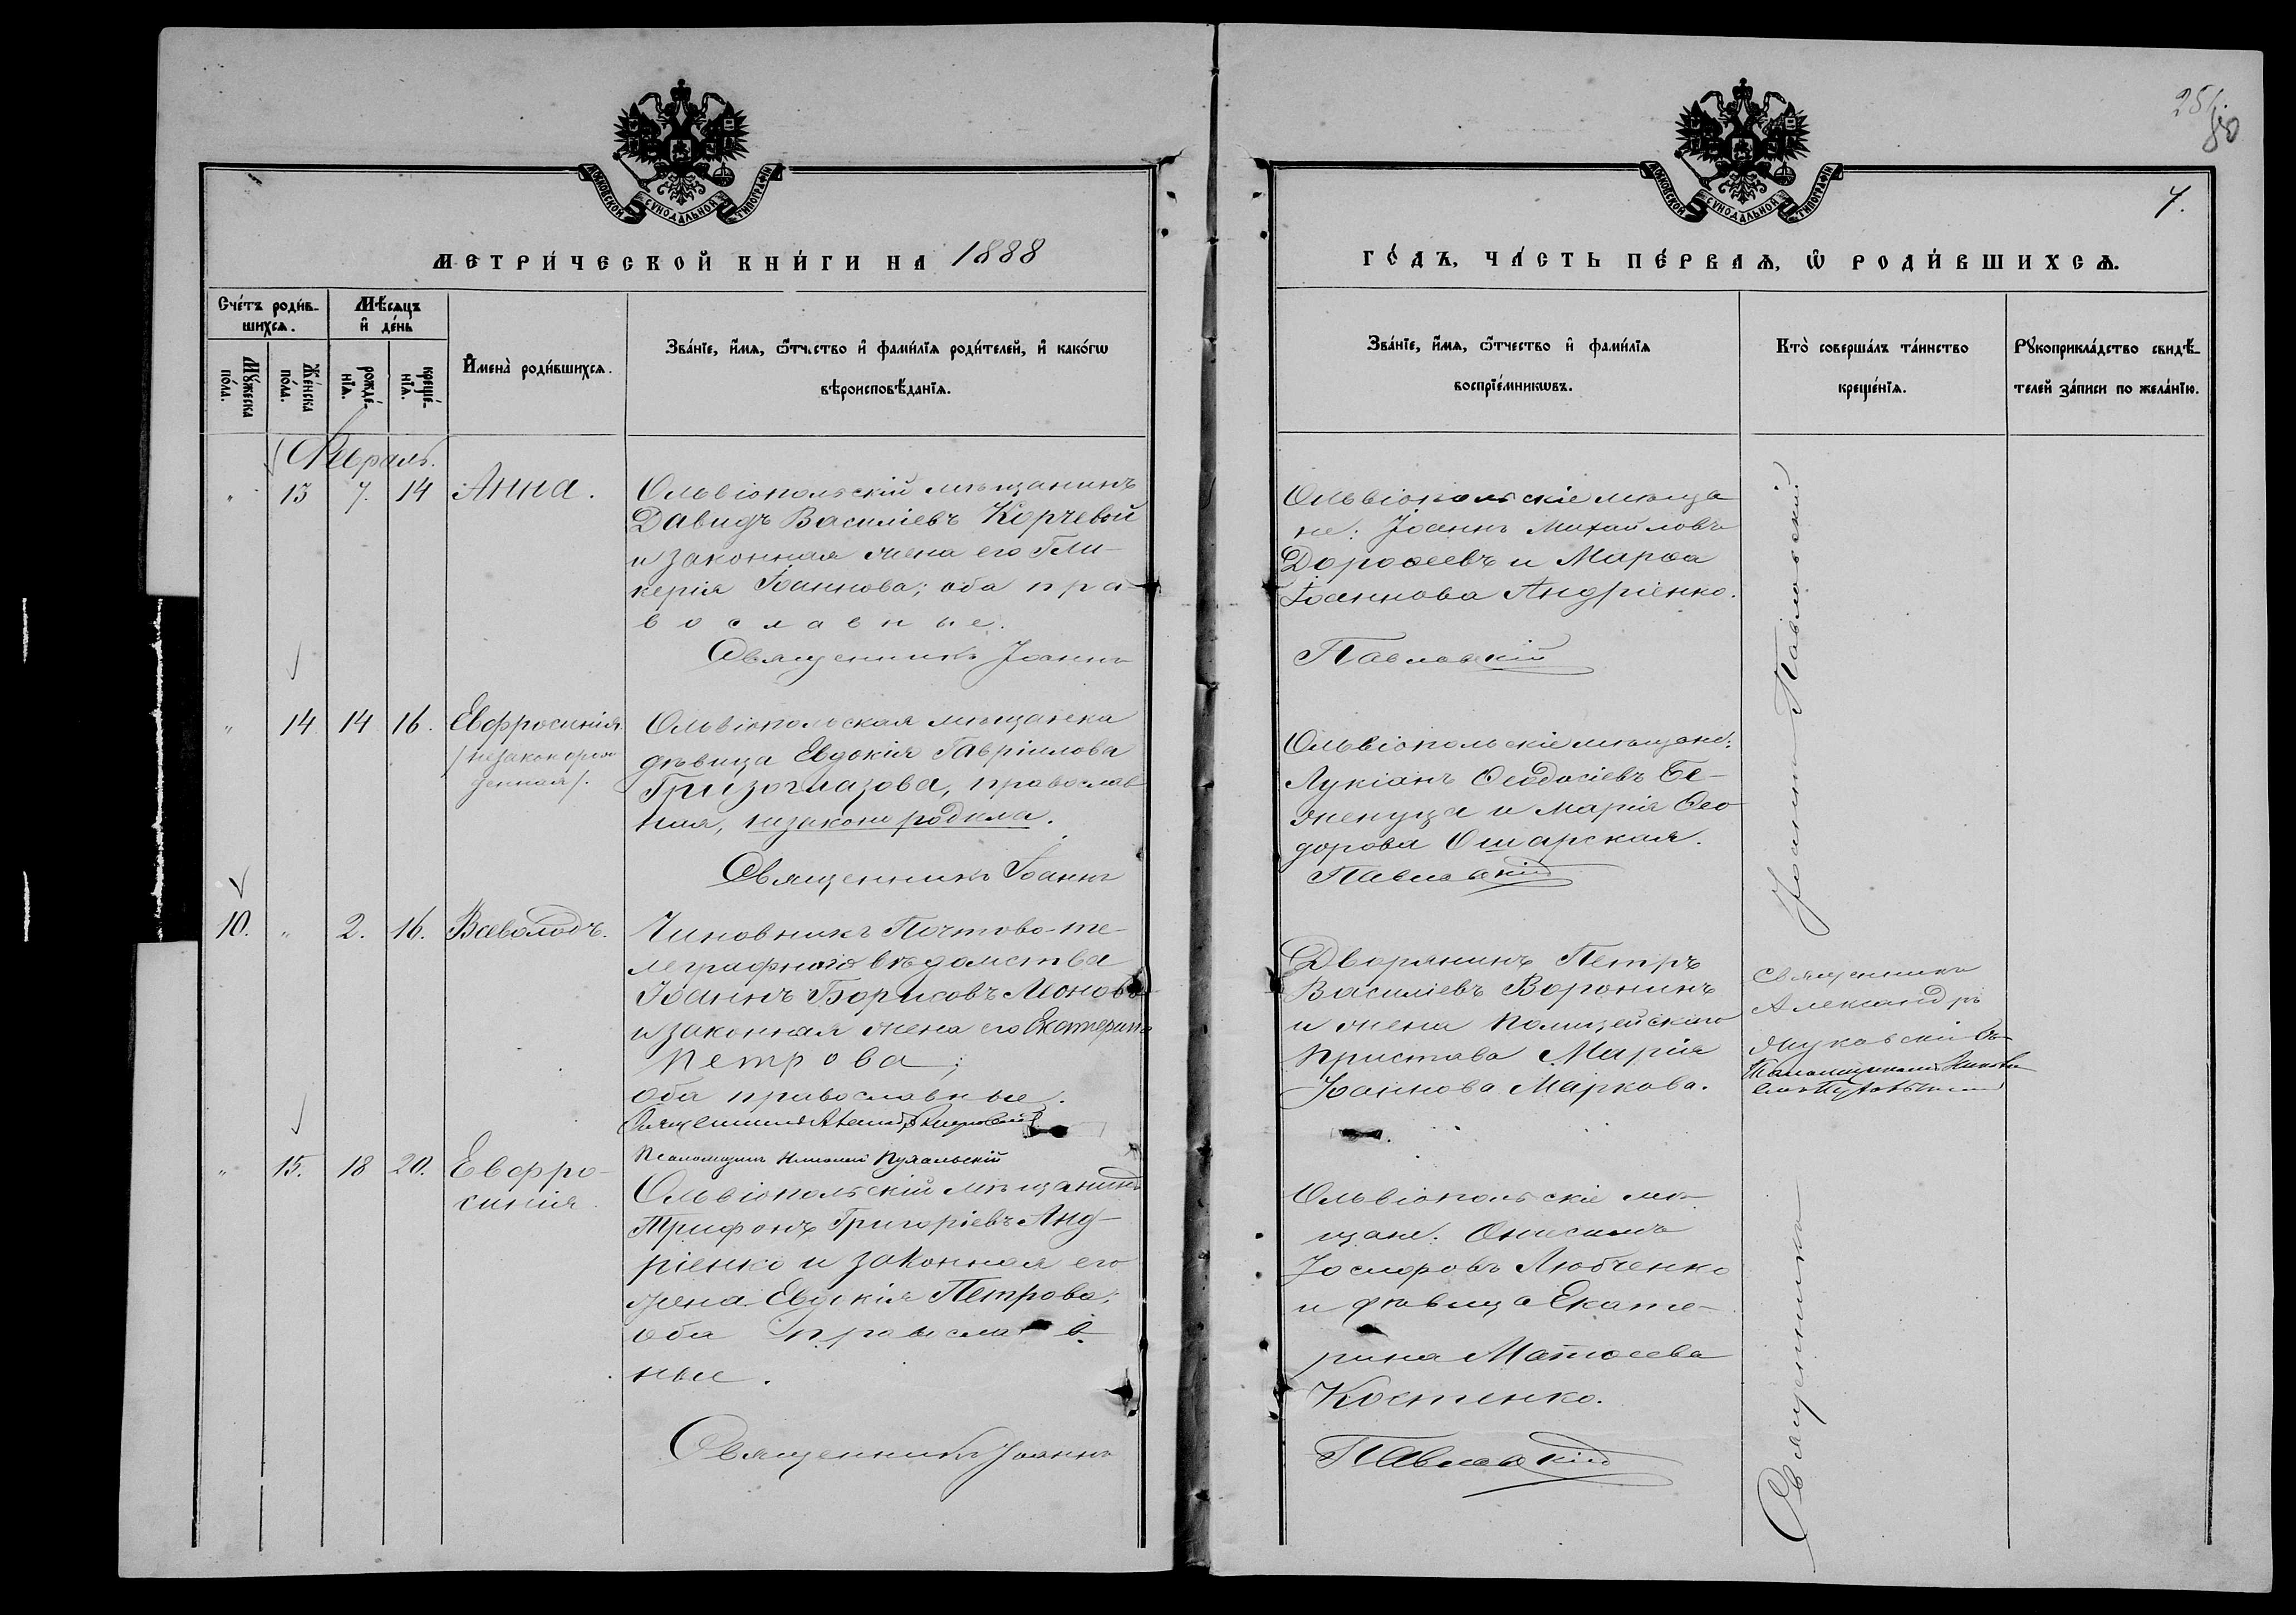 МОСКОВСКОЙ СѴНОДАЛЬНОЙ ТИПОГРАФІИ
МЕТРИ́ЧЕСКОЙ КНИ́ГИ НА 1888
Сче́тъ роди́в-
шихсѧ.
Мѣ́сѧцъ
и҆ де́нь
Мꙋ́жеска
по́ла.
Же́нска
по́ла.
рожде́-
нїѧ.
креще́-
нїѧ.
И҆мена̀ роди́вшихсѧ.
Зва́нїе, и҆́мѧ, ѻ҆́тчество и҆ фами́лїѧ роди́телей, и҆ како́гѡ
вѣроисповѣ́данїѧ.
Февраль.
" 13 7. 14 Анна.
Ольвіопольскій мѣщанинъ
Давидъ Василіевъ Корчевой
и законная жена его Гли-
керія Іоаннова; оба пра-
вославные.
Священникъ Іоаннъ
" 14 14 16. Евфросинія
/незаконорож
денная/.
Ольвіопольская мѣщанка
дѣвица Евдокія Гавріилова
Гризоглазова, православ
ная, незаконо родила.
Священникъ Іоаннъ
10. " 2. 16. Всеволодъ.
Чиновникъ Почтово-те-
леграфнаго вѣдомства
Іоаннъ Борисовъ Леоновъ
и законная жена его Екатерина
Петрова;
оба православные.
Священникъ
Псаломщикъ Николай
" 15. 18 20. Евфро-
синія
Ольвіопольскій мѣщанинъ
Трифонъ Григоріевъ Анд-
ріенко и законная его
жена Евдокія Петрова;
оба православ
ные.
Священникъ Іоаннъ
25
80
7.
МОСКОВСКОЙ СѴНОДАЛЬНОЙ ТИПОГРАФІИ
ГО́ДЪ, ЧА́СТЬ ПЕ́РВАѦ, Ѡ҆ РОДИ́ВШИХСѦ.
Зва́нїе, и҆́мѧ, ѻ҆́тчество и҆ фами́лїѧ
воспрїе́мникѡвъ.
Кто̀ соверша́лъ та́инство
креще́нїѧ.
Рꙋкоприкла́дство свидѣ́-
телей за́писи по жела́нїю.
Ольвіопольскіе мѣща
не: Іоаннъ Михайловъ
Дороѳеевъ и Марѳа
Іоаннова Андріенко.
Павловскій
Ольвіопольскіе мѣщане:
Лукіанъ Ѳеодосіевъ Бе-
женуца и Марія Ѳео
дорова Ошарская.
Павловскій
Дворянинъ Петръ
Василіевъ Воронинъ
и жена Полицейскаго
Пристава Марія
Іоаннова Маркова.
Ольвіопольскіе мѣ-
щане: Онисимъ
Іосифовъ Любченко
и дѣвица Екате-
рина Матѳеева
Костенко.
Павловскій
Священникъ Іоаннъ Павловскій.
Священникъ
Александръ
съ
Псаломщикомъ